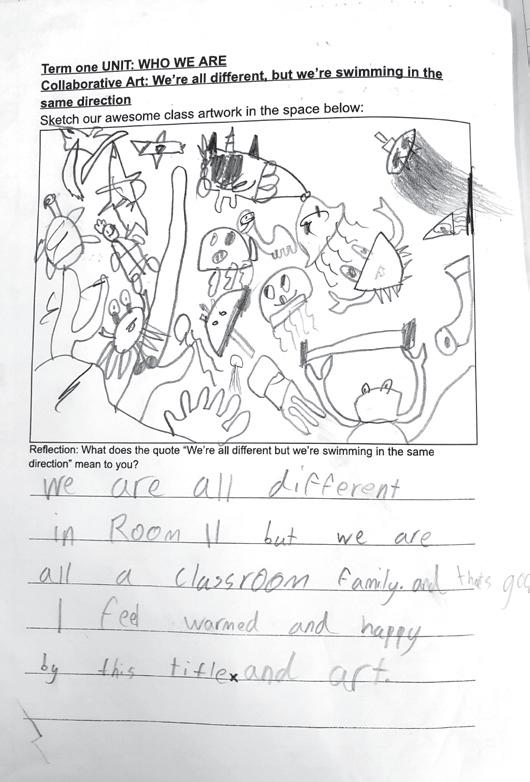 Term one UNIT: WHO WE ARE
Collaborative Art: We're all different, but we're swimming in the
same direction
Sketch our awesome class artwork in the space below:
Reflection: What does the quote "We're all different but we're swimming in the same
direction" mean to you?
We are all different
in Room 11 but we are
all a classroom family. and thats
I feel warmed and happy
by this title and art.